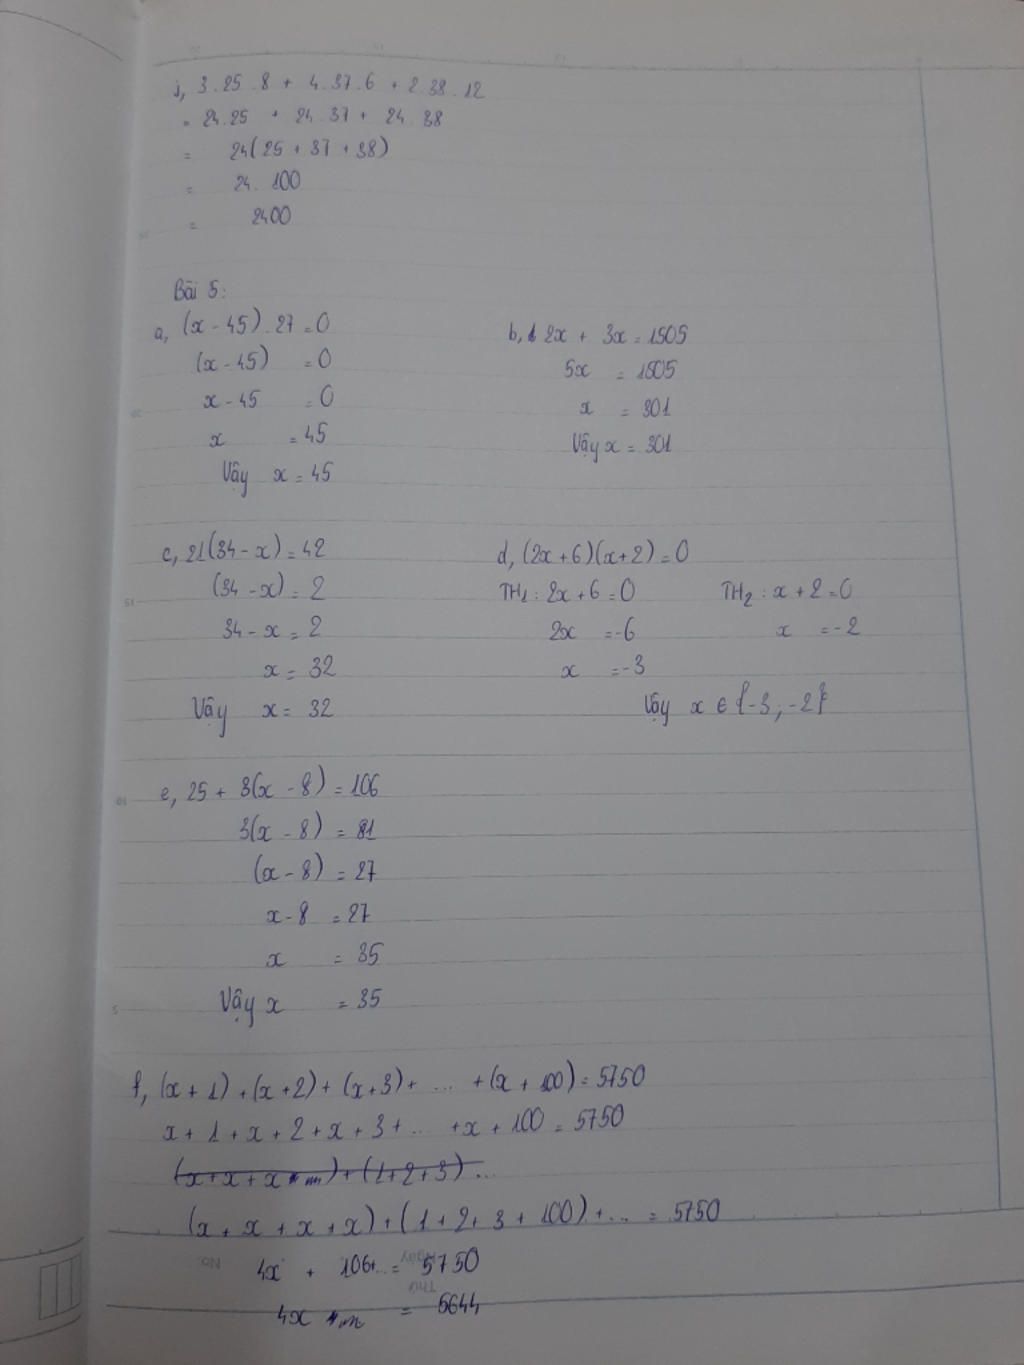 j, 3.25.8 + 4.37.6 + 2.38.12
= 24.25 + 24.37 + 24.38
= 24(25 + 37 + 38)
= 24.100
= 2400
Bài 5:
a, (x - 45).27 = 0
(x - 45) = 0
x - 45 = 0
x = 45
Vậy x = 45
b, 2x + 3x = 1505
5x = 1505
x = 301
Vậy x = 301
c, 21(34 - x) = 42
(34 - x) = 2
34 - x = 2
x = 32
Vậy x = 32
d, (2x + 6)(x + 2) = 0
TH1: 2x + 6 = 0
2x = -6
x = -3
TH2: x + 2 = 0
x = -2
Vậy x ∈ {-3; -2}
e, 25 + 3(x - 8) = 106
3(x - 8) = 81
(x - 8) = 27
x - 8 = 27
x = 35
Vậy x = 35
f, (x + 1) + (x + 2) + (x + 3) + ... + (x + 100) = 5750
x + 1 + x + 2 + x + 3 + ... + x + 100 = 5750
(x + x + x + x) + (1 + 2 + 3 + 100) + ... = 5750
4x + 106+... = 5750
4x = 5644